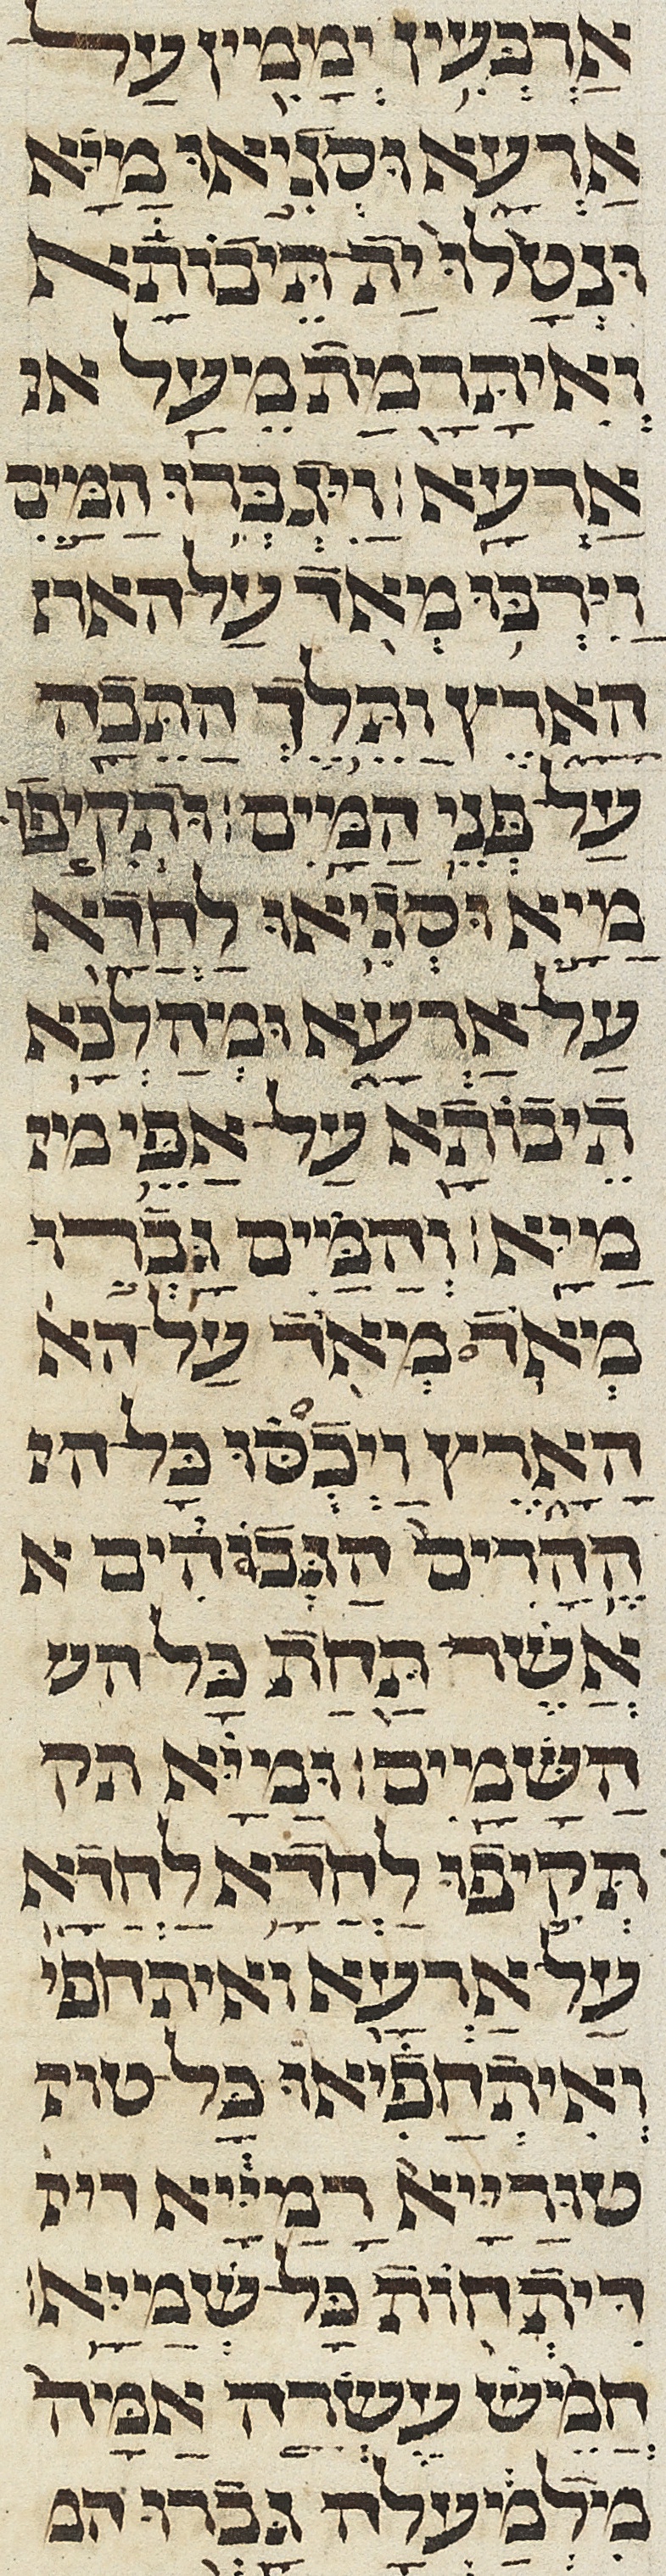 אַרְבְּעִין יְמָמִין עַל
אַרְעָא וּסְגִיאוּ מַיָּא
וּנְטָלוּ יַת תֵּיבוֹתָא
וְאִיתָּרָמַת מֵעַל אר
אַרְעָא׃ וַיִּגְבְּרוּ הַמַּיִם
וַיִּרְבּוּ מְאֹד עַל הארץ
הָאָרֶץ וַתֵּלֶךְ הַתֵּבָה
עַל פְּנֵי הַמָּיִם׃ וּתְקִיפוּ
מַיָּא וּסְגִיאוּ לַחְדָא
עַל אַרְעָא וּמְהַלְּכָא
תֵיבוֹתָא עַל אַפֵּי מי
מַיָּא׃ וְהַמַּיִם גָּבְרוּ
מְאֹד מְאֹד עַל הא
הָאָרֶץ וַיְכֻסּוּ כָּל הה
הֶהָרִים הַגְּבוֹהִים א
אֲשֶׁר תַּחַת כָּל הש
הַשָּׁמָיִם׃ וּמַיָּא תק
תְּקִיפוּ לַחְדָא לַחְדָא
עַל אַרְעָא ואיתחפי
וְאִיתְחַפִיאוּ כָּל טור
טוּרַיָּא רָמַיָּא די
דִּיתְחוֹת כָּל שְׁמַיָּא׃
חֲמֵשׁ עֶשְׂרֵה אַמָּה
מִלְמַעְלָה גָּבְרוּ המ